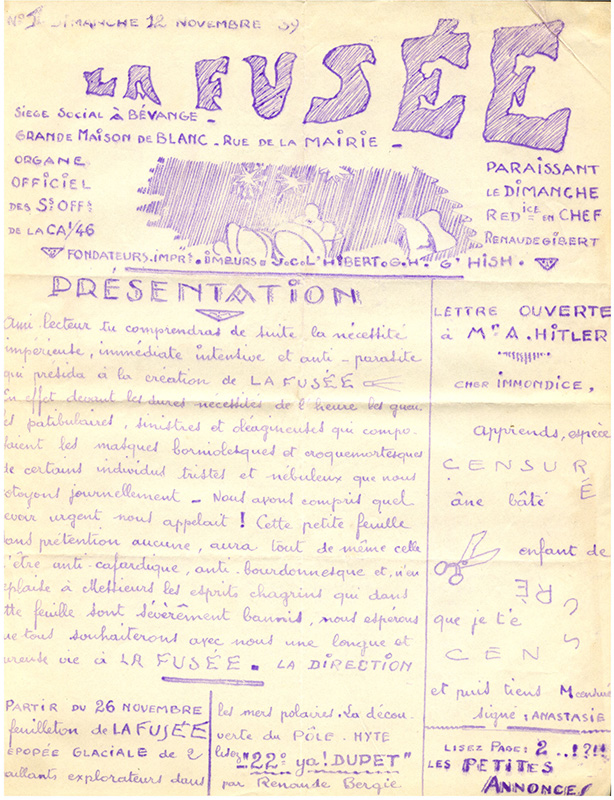 Nº 1 DIMANCHE 12 NOVEMBRE 39
LA FUSÉE
SIEGE SOCIAL À BÉVANGE -
GRANDE MAISON DE BLANC - RUE DE LA MAIRIE -
ORGANE
OFFICIEL
DES Ss OFFs
DE LA CA1/46
PARAISSANT
LE DIMANCHE
REDICE EN CHEF
RENAUDE GIBERT
FONDATEURS. IMPRI. J.C. L'HIBERT. G.H. G'HISH.
PRÉSENTATION
Ami lecteur tu comprendras de suite la nécéssité
impérieuse, immédiate intensive et anti-parasite
qui présida à la création de LA FUSÉE
En effet devant les dures nécéssités de l'heure les gueu
es patibulaires, sinistres et oléagineuses qui compo-
saient les masques borniolesques et croquemortesques
de certains individus tristes et nébuleux que nous
otoyons journellement - Nous avons compris quel
evoir urgent nous appelait! Cette petite feuille
sans prétention aucune, aura tout de même celle
d'être anti-cafardique, anti-bourdonnesque et, n'en
eplaise à Messieurs les esprits chagrins qui dans
tte feuille sont sévèrement bannis, nous espérons
ue tous souhaiterons avec nous une longue et
ureuse vie à LA FUSÉE. LA DIRECTION
LETTRE OUVERTE
à Mr A. HITLER
CHER IMMONDICE,
Apprends, espèce
CENSURÉ
âne bâté
enfant de
CENSURÉ
que je t'é
CENS
et puis tiens M censuré
signé: ANASTASIE
PARTIR DU 26 NOVEMBRE
feuilleton de LA FUSÉE
ÉPOPÉE GLACIALE DE 2
aillants explorateurs dans
les mers polaires. La décou-
verte du PÔLE-HYTE
lisez "22º ya! DUPET"
par Renaude Bergie.
LISEZ PAGE: 2...!?!!
LES PETITES
ANNONCES